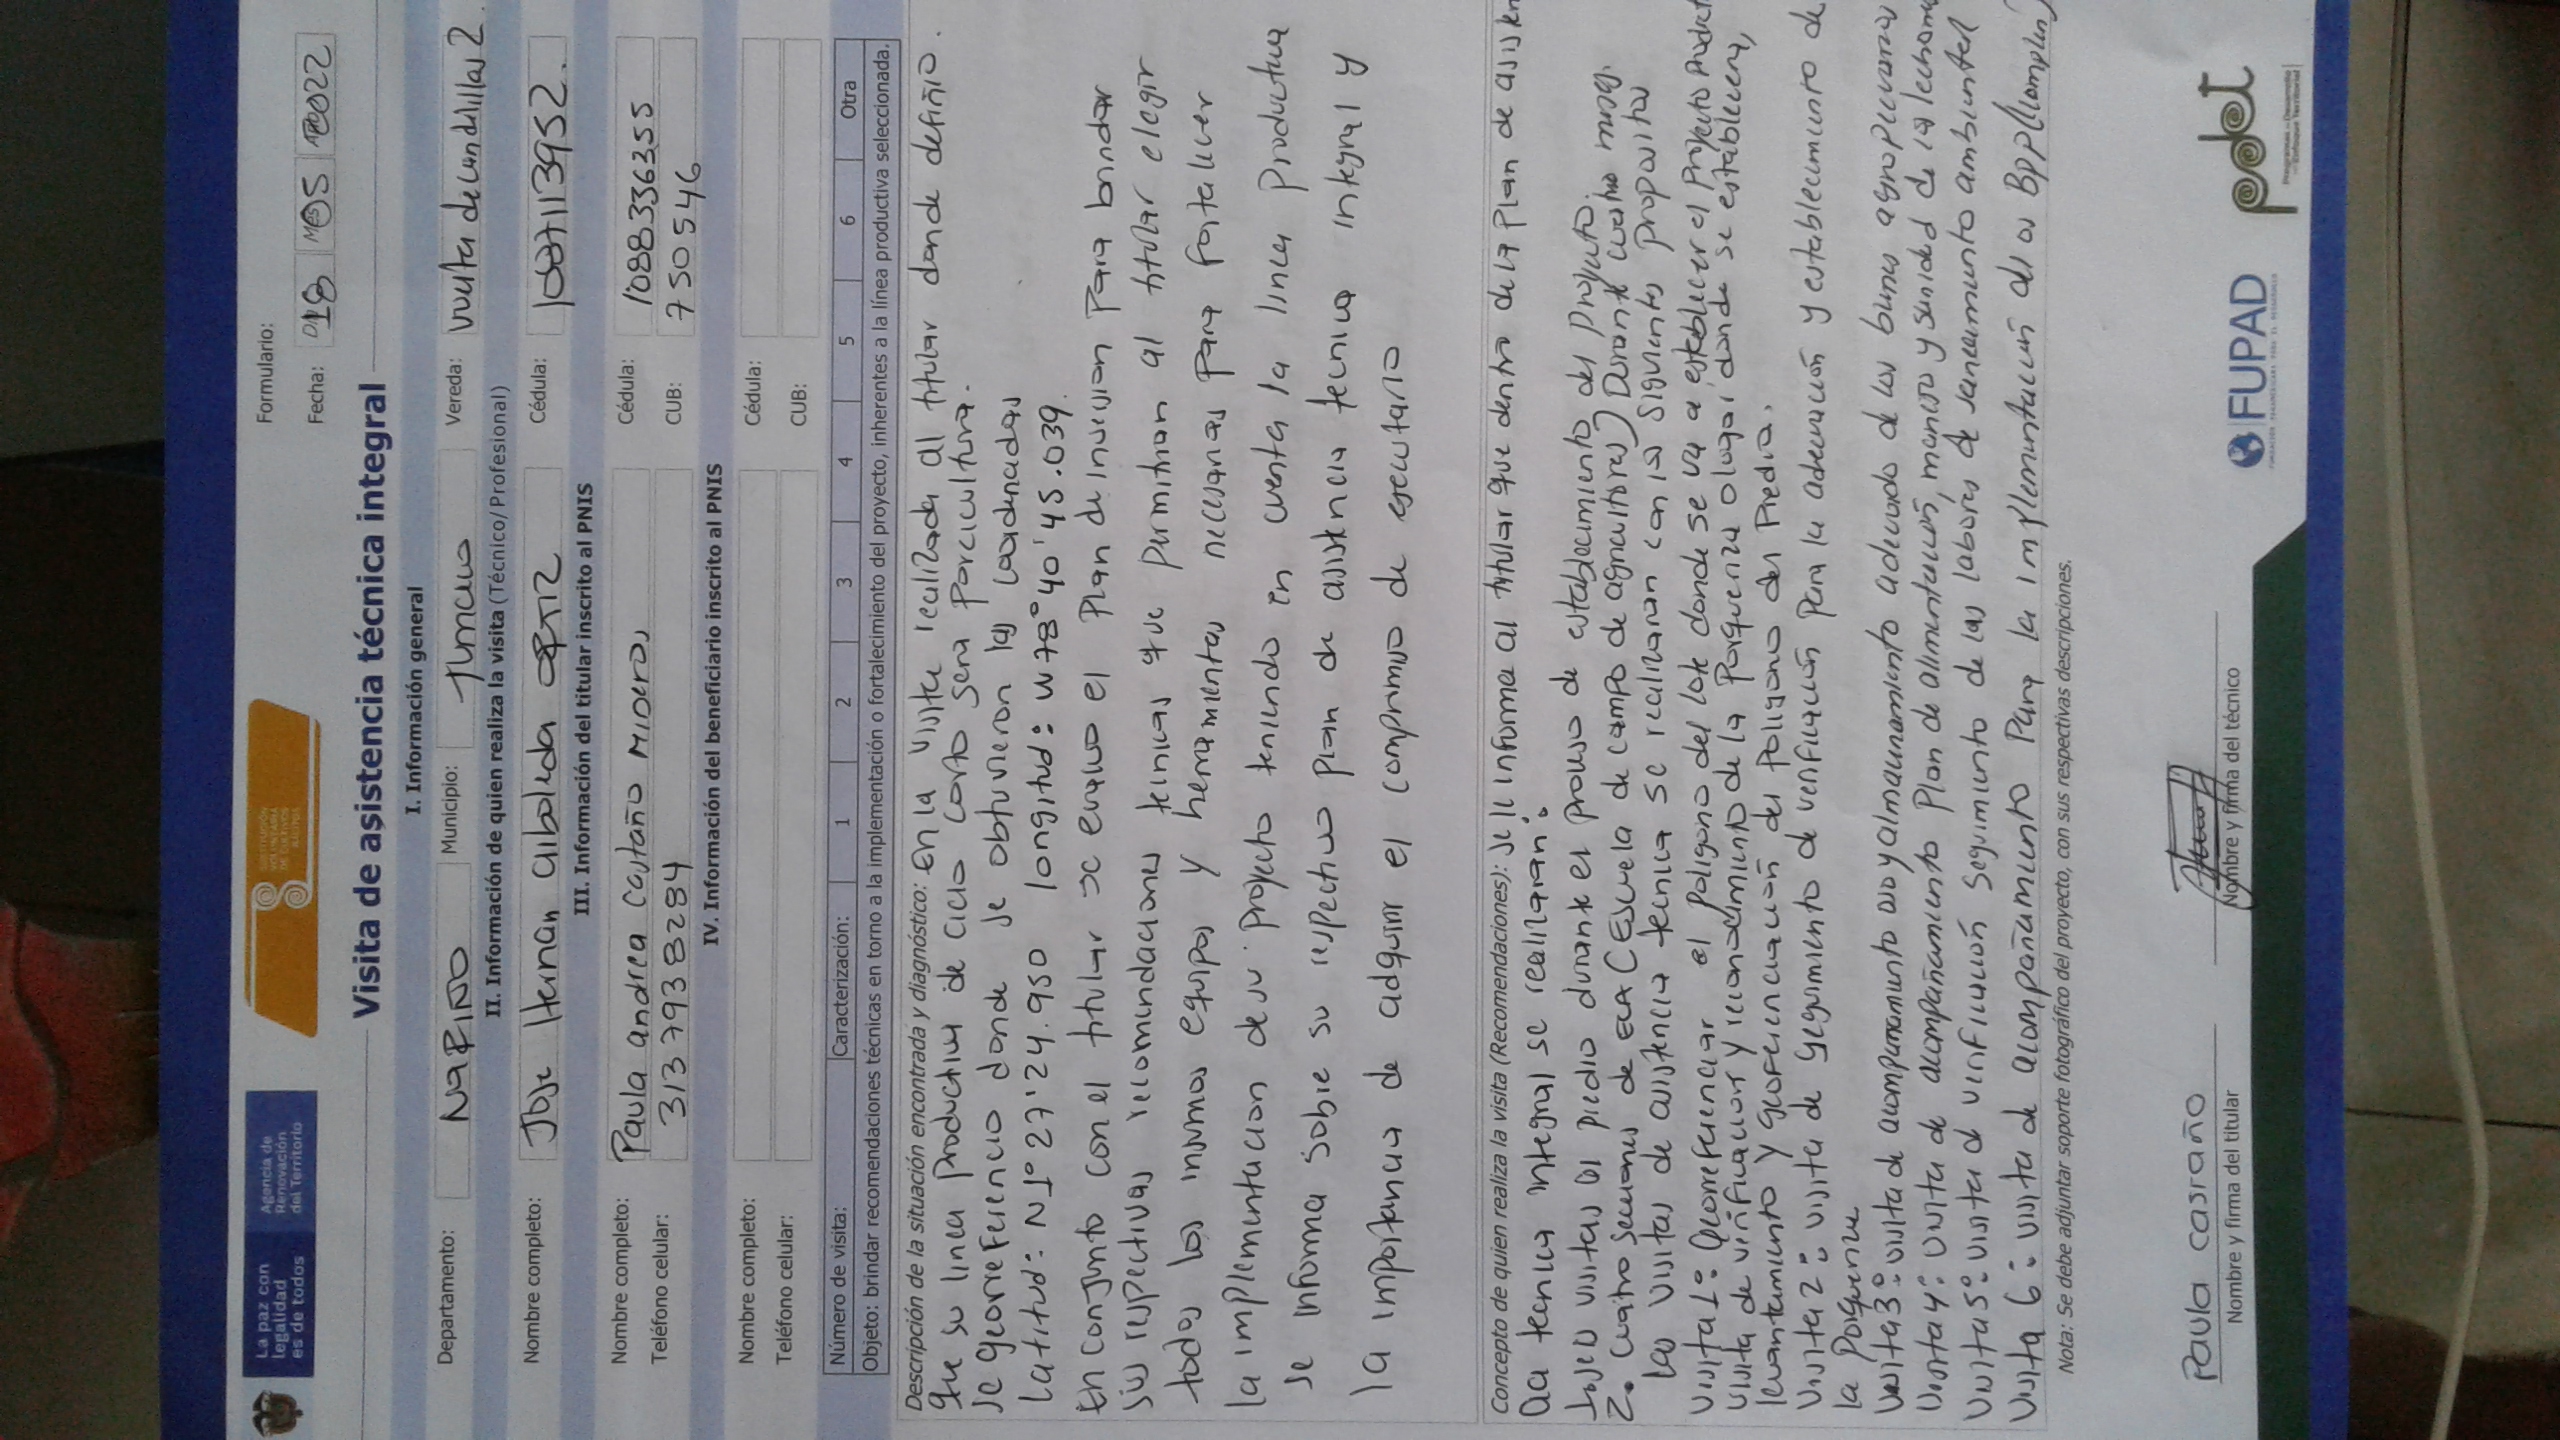 La paz con
legalidad
es de todos
Agencia de
Renovación
del Territorio
SUSTITUCIÓN
VOLUNTARIA
DE CULTIVOS
ILÍCITOS
Formulario:
Fecha: D18 MES 05 AÑO 2022
Visita de asistencia técnica integral
I. Información general
Departamento: NARIÑO Municipio: Tumaco Vereda: vuelta de candelillas 2.
II. Información de quien realiza la visita (Técnico/Profesional)
Nombre completo: Jose Hernan arboleda ORTIZ Cédula: 1087113952.
III. Información del titular inscrito al PNIS
Nombre completo: Paula andrea castaño Mideros Cédula: 1088336355
Teléfono celular: 3137938284 CUB: 750546
IV. Información del beneficiario inscrito al PNIS
Nombre completo: Cédula:
Teléfono celular: CUB:
Número de visita: Caracterización: 1 2 3 4 5 6 Otra
Objeto: brindar recomendaciones técnicas en torno a la implementación o fortalecimiento del proyecto, inherentes a la línea productiva seleccionada.
Descripción de la situación encontrada y diagnóstico: En la visita realizada al titular donde definio.
que su linea productiva de ciclo corto sera Porcicultura.
se georreferencio donde se obtuvieron las coordenadas
Latitud: N1°27'24.950 longitud: W78°40'45.039.
En conjunto con el titular se evaluo el Plan de inversion para brindar
sus respectivas recomendaciones tecnicas que permitiran al titular elegir
todos los insumos equipos y herramientas necesarias para fortalecer
la implementacion de su proyecto teniendo en cuenta la linea productiva
se informa sobre su respectivo plan de asistencia tecnica integral y
la importancia de adquirir el compromiso de ejecutarlo
Concepto de quien realiza la visita (Recomendaciones): se le informa al titular que dentro de la Plan de asisten
cia tecnica integral se realizaran:
1. Seis visitas al predio durante el proceso de establecimiento del proyecto.
2. cuatro sesiones de ECA (Escuela de campo de agricultores) Durante cuatro meses.
Las visitas de asistencia tecnica se realizaran con los siguientes propositos
visita 1: Georreferenciar el poligono del lote donde se va a establecer el Proyecto Product
visita de verificacion y reconocimiento de la Porqueriza o lugar donde se establecera,
levantamiento y georeferenciación del Poligono del Predio.
Visita 2: visita de seguimiento de verificación para la adecuación y establecimiento de
la Porqueriza
Visita 3: visita de acompañamiento uso y almacenamiento adecuado de los bienes agropecuarios
Visita 4: visita de acompañamiento Plan de alimentación, manejo y sanidad de los lechones
Visita 5: visita de verificación seguimiento de las labores de saneamiento ambiental
Visita 6: visita de acompañamiento Para la implementación de las BPP(
Nota: Se debe adjuntar soporte fotográfico del proyecto, con sus respectivas descripciones.
Paula casraño
Nombre y firma del titular
Nombre y firma del técnico
FUPAD
pdet
Programas de Desarrollo
con Enfoque Territorial